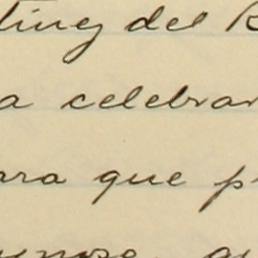 ting del
a celebrar
ara que p